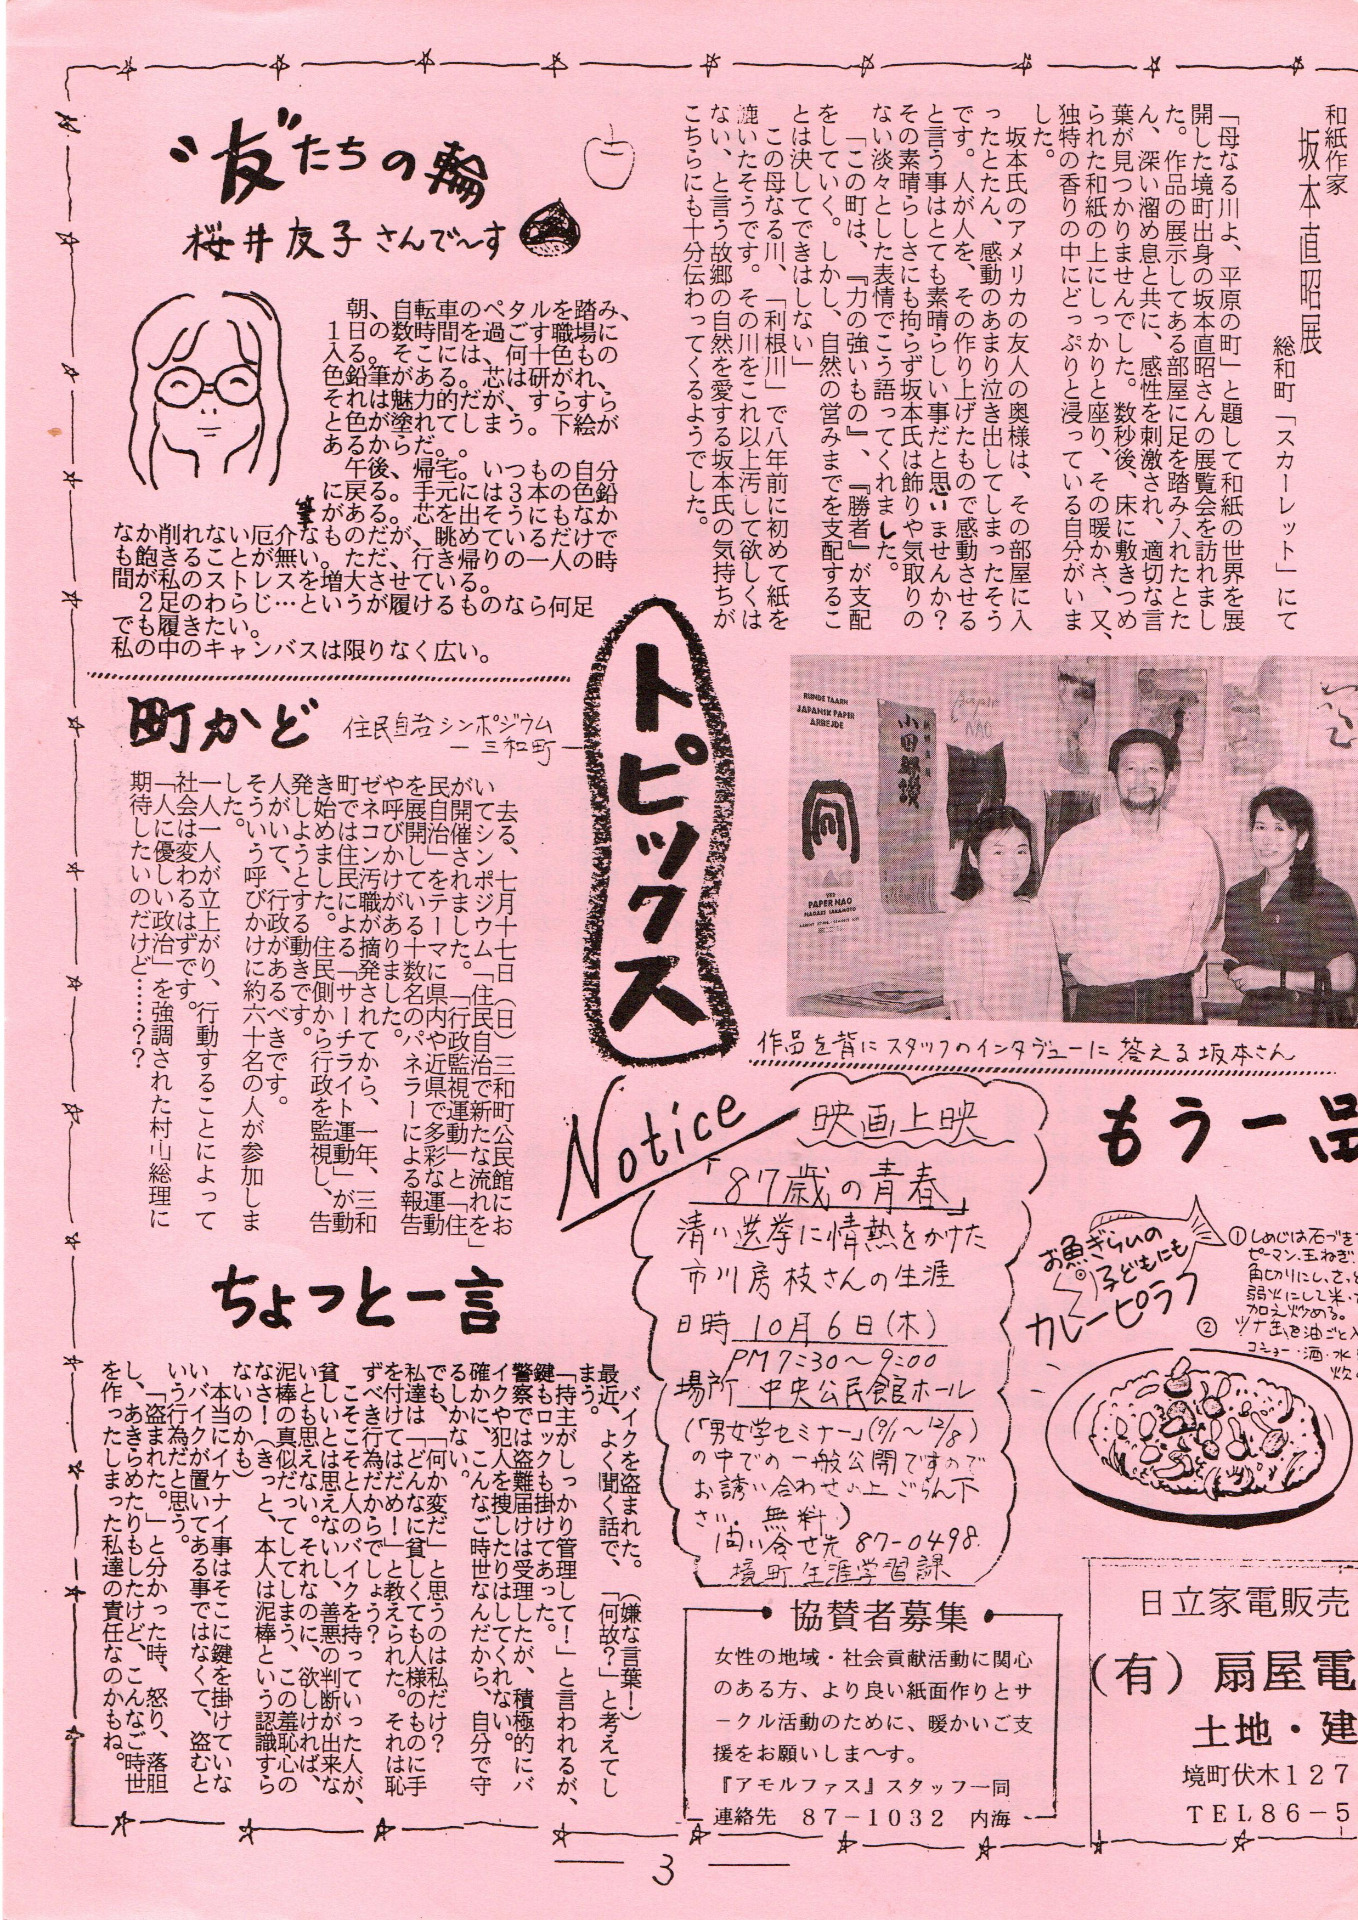 和紙作家
坂本直昭展
総和町「スカーレット」にて
「母なる川よ、平原の町」と題して和紙の世界を展
開した境町出身の坂本直昭さんの展覧会を訪れまし
た。作品の展示してある部屋に足を踏み入れたとた
ん、深い溜め息と共に、感性を刺激され、適切な言
葉が見つかりませんでした。数秒後、床に敷きつめ
られた和紙の上にしっかりと座り、その暖かさ、又、
独特の香りの中にどっぷりと浸っている自分がいま
した。
坂本氏のアメリカの友人の奥様は、その部屋に入
ったとたん、感動のあまり泣き出してしまったそう
です。人が人を、その作り上げたもので感動させる
と言う事はとても素晴らしい事だと思いませんか?
その素晴らしさにも拘らず坂本氏は飾りや気取りの
ない淡々とした表情でこう語ってくれました。
「この町は、『力の強いもの』、『勝者』が支配
をしていく。しかし、自然の営みまでを支配するこ
とは決してできはしない」
この母なる川、「利根川」で八年前に初めて紙を
漉いたそうです。その川をこれ以上汚して欲しくは
ない、と言う故郷の自然を愛する坂本氏の気持ちが
こちらにも十分伝わってくるようでした。
RUNDE TAARN
JAPANSK PAPER
ARBEJDE
PAPER NAO
作品を背にスタッフのインタヴューに答える坂本さん
トピックス
“友”たちの輪
桜井友子さんで〜す
朝、自転車のペタルを踏み、
1日の数時間を過ごす職場に
入る。そこには、何十色もの
色鉛筆がある。芯は研がれ、
それは魅力的だ。がす
午後、帰宅。いつもの自分
に戻る。手元には3本の鉛
がある。
なか削れない厄介なものだが、眺めているだけで
も飽きることが無い。ただ、行き帰りの一人の時
間が私のストレスを増大させている。
2足のわらじ…というが履けるものなら何足
でも履きたい。
私の中のキャンバスは限りなく広い。
町かど
住民自治シンポジウム
―三和町―
去る、七月十七日(日)三和町公民館にお
いてシンポジウム「住民自治で新たな流れを」
が開催されました。「行政監視運動」と「住
民自治」をテーマに県内や近県で多彩な運動
を展開している十数名のパネラーによる報告
や呼びかけがありました。
ゼネコン汚職が摘発されてから、一年、三和
町では住民による「サーチライト運動」が動
き始めました。住民側から行政を監視し、告
発しようとする動きです。
人がいて、行政があるべきです。
そういう呼びかけに約六十名の人が参加しま
した。
一人一人が立上がり、行動することによって
社会は変わるはずです。
「人に優しい政治」を強調された村山総理に
期待したいのだけど……??
ちょっと一言
バイクを盗まれた。(嫌な言葉!)
最近、よく聞く話で、「何故?」と考えてし
まう。
「持主がしっかり管理して!」と言われるが、
鍵もロックも掛けてあった。
警察では盗難届けは受理したが、積極的にバ
イクや犯人を捜したりはしてくれない。
確かに、こんなご時世なんだから、自分で守
るしかない。
でも、「何か変だ」と思うのは私だけ?
私達は「どんなに貧しくても人様のものに手
を付けてはだめ!」と教えられた。それは恥
ずべき行為だからでしょう?
こそこそと人のバイクを持っていった人が、
貧しいとは思えないし、善悪の判断が出来な
いとも思えない。それなのに、欲しければ、
泥棒の真似だってしてしまう、この羞恥心の
なさ!(きっと、本人は泥棒という認識すら
ないのかも)
本当にイケナイ事はそこに鍵を掛けていな
いバイクが置いてある事ではなくて、盗むと
いう行為だと思う。
「盗まれた。」と分かった時、怒り、落胆
し、あきらめたりもしたけど、こんなご時世
を作ったしまった私達の責任なのかもね。
Notice
映画上映
「87歳の青春」
清い選挙に情熱をかけた
市川房枝さんの生涯
日時 10月6日(木)
PM7:30〜9:00
場所 中央公民館ホール
(「男女学セミナー」(9/1〜12/8)
の中での一般公開ですので
お誘い合わせの上ごらん下
さい。無料)
問い合せ先 87-0498
境町生涯学習課
協賛者募集
女性の地域・社会貢献活動に関心
のある方、より良い紙面作りとサ
ークル活動のために、暖かいご支
援をお願いしま〜す。
『アモルファス』スタッフ一同
連絡先 87−1032 内海
もう一品
お魚ぎらいの
子どもにも
カレーピラフ
①しめじは石づき
ピーマン、玉ねぎ、
角切りにし、さっと
弱火にして米・
加え炒める。
②ツナ缶を油ごと入
コショー・酒・水
炊
日立家電販売
(有)扇屋電
土地・建
境町伏木127
TEL86−5
3